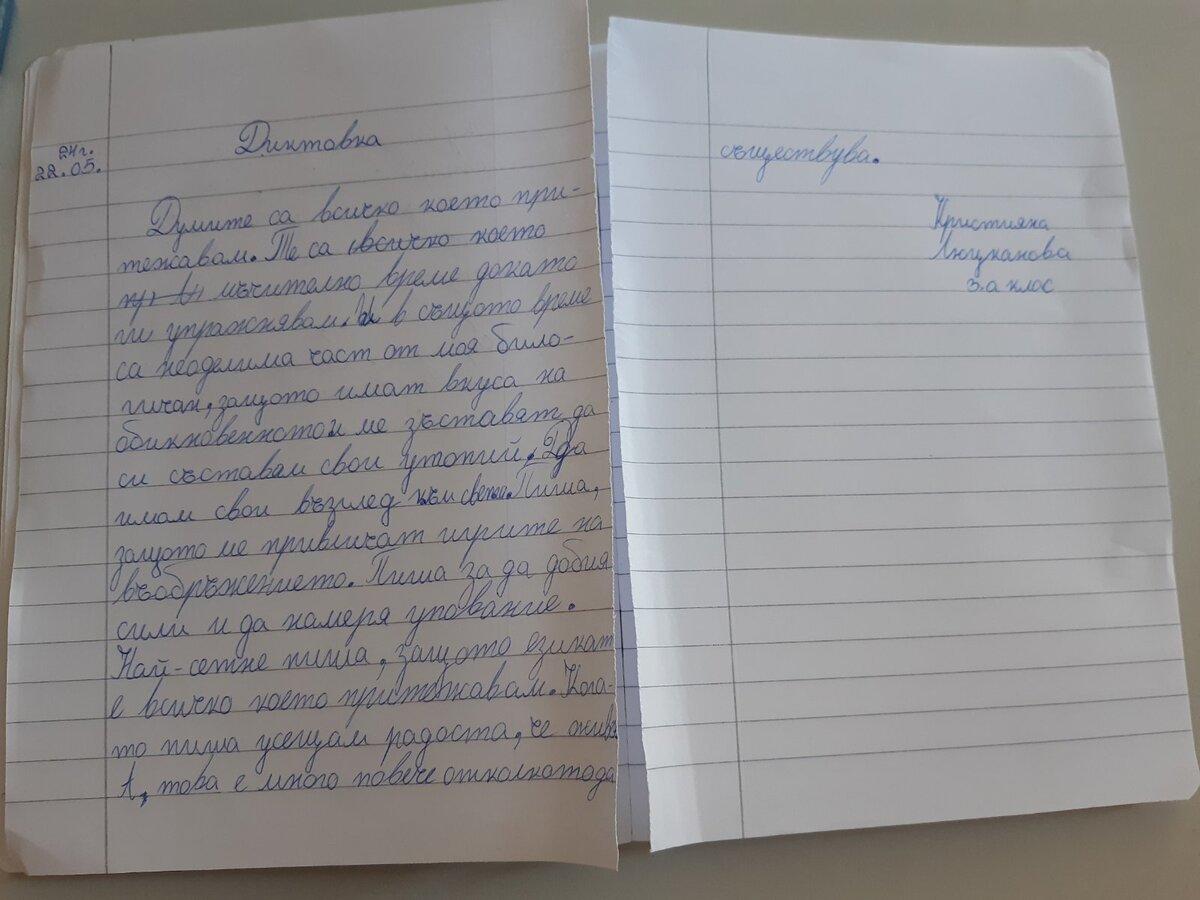 Диктовка
24г.
22.05.
Думите са всичко което при-
тежавам. Те са всичко което
мъчително време докато
ги упражнявам. И в същото време
са неоделима част от моя било-
гичан, защото имат вкуса на
обикновеното и ме зъставят да
си съставам свои утопий. Да
имам свои възглед към света. Пиша,
защото ме привличат игрите на
въобръжението. Пиша за да добия
сили и да намеря упование.
Най-сетне пиша, защото езикат
е всичко което притежавам. Кога-
то пиша усещам радоста, че живея
А, това е много повече отколкото да
съществува.
Кристияна
3.а клас